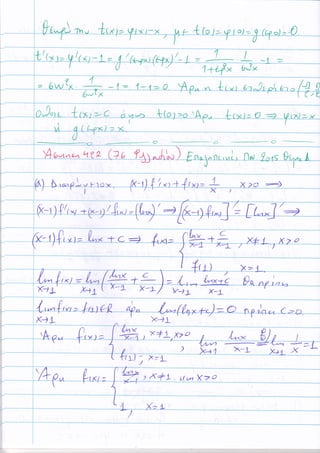 Θεωρώ την t(x)=φ(x)-x, με t(0)=φ(0)=g(εφ0)=0
t'(x)=φ'(x)-1=g'(εφx)(εφx)'-1=\frac{1}{1+εφ²x}·\frac{1}{συν²x}-1=
=συν²x·\frac{1}{συν²x}-1=1-1=0. Άρα η t(x) σταθερή στο
Οπότε t(x)=c όμως t(0)=0 Άρα t(x)=0 ⇒ φ(x)=x
ή g(εφx)=x.
Άσκηση 422 (76 Φυλλάδιο) Επαναληπτικές Παν 2015 Θέμα Δ
Διαιρώντας x. (x-1)f'(x)+f(x)=\frac{1}{x}, x>0 ⇒
(x-1)f'(x)+(x-1)'f(x)=(lnx)' ⇒ [(x-1)f(x)]'=[lnx]' ⇒
(x-1)f(x)=lnx+c ⇒ f(x)= { \frac{lnx}{x-1}+\frac{c}{x-1}, x≠1, x>0
f(1) x=1.
lim_{x→1} f(x)=lim_{x→1}(\frac{lnx}{x-1}+\frac{c}{x-1})=lim_{x→1}\frac{lnx+c}{x-1} Θα πρέπει
lim_{x→1} f(x)=f(1)∈R άρα lim_{x→1}(lnx+c)=0 πρέπει c=0.
Άρα f(x)= { \frac{lnx}{x-1}, x≠1, x>0
f(1), x=1 , lim_{x→1}\frac{lnx}{x-1}=lim_{x→1}\frac{1}{x}=1
Άρα f(x)= { \frac{lnx}{x-1}, x≠1 και x>0
1, x=1